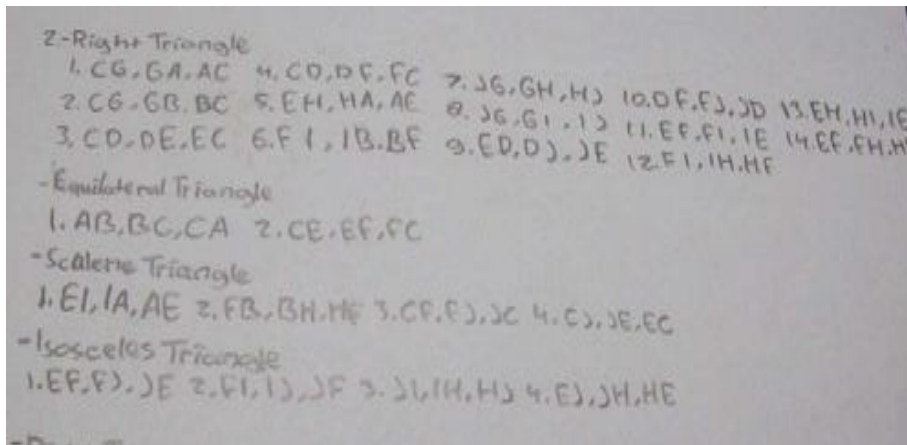 2-Right Triangle
1. CG, GA, AC 4. CD, DF, FC 7. JG, GH, HJ 10. DF, FJ, JD 13. EH, HI, IE
2. CG, GB, BC 5. EH, HA, AE 8. JG, GI, IJ 11. EF, FI, IE 14. EF, FH, H
3. CD, DE, EC 6. FI, IB, BF 9. ED, DJ, JE 12. FI, IH, HF
-Equilateral Triangle
1. AB, BC, CA 2. CE, EF, FC
-Scalene Triangle
1. EI, IA, AE 2. FB, BH, HF 3. CF, FJ, JC 4. CJ, JE, EC
-Isosceles Triangle
1. EF, FJ, JE 2. FI, IJ, JF 3. JI, IH, HJ 4. EJ, JH, HE